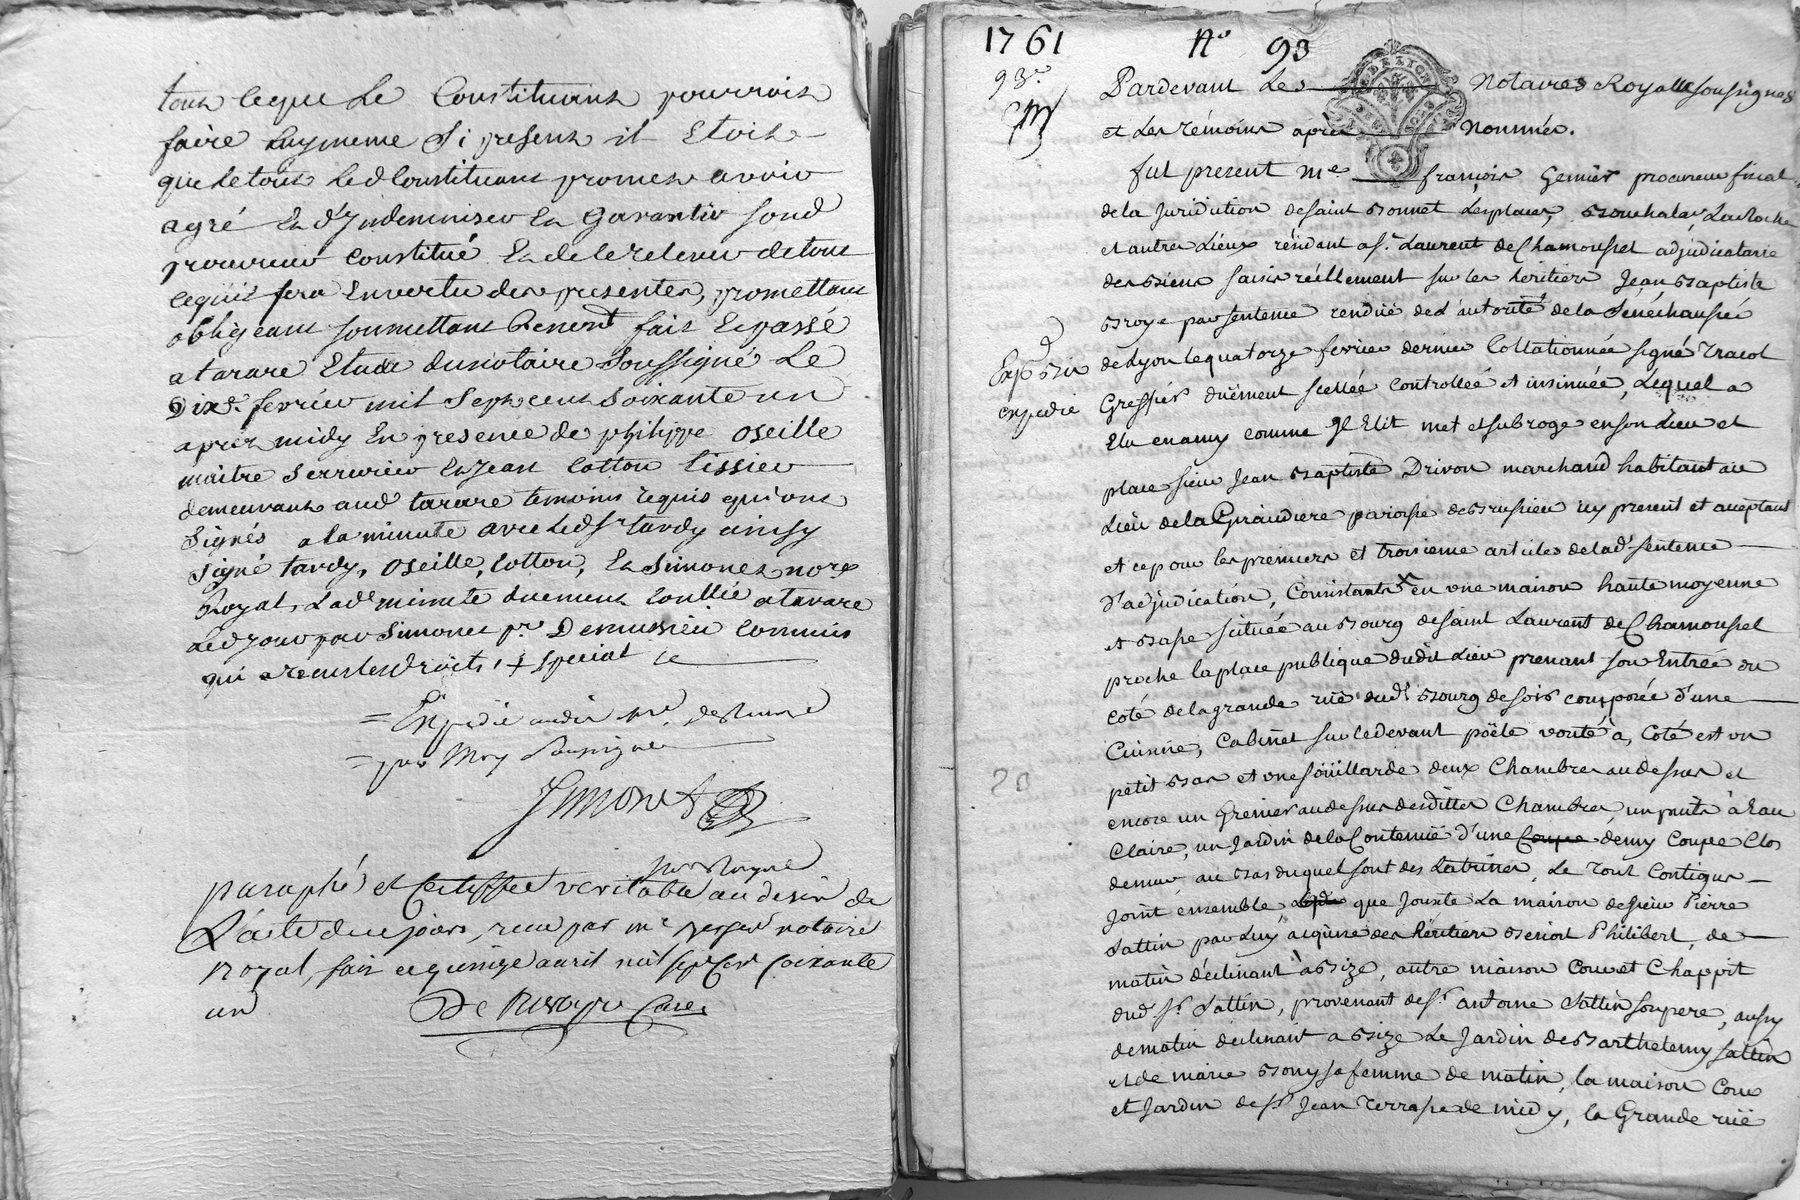 tout ceque Le Constituant pourroit
faire luymeme Si present il Etoit
que le tout led Constituant promet avoir
agré Et d'Indemniser Et Garantir Sond
procureur Constitué Et de le relever de tout
cequil fera Envertu des presentes, promettant
obligeant soumettant Renonct fait Et passé
a tarare Etude dunotaire Soussigné Le
Dixe fevrier mil Sept cent Soixante un
aprez midy En presence de philippe oseille
maitre Serrurier Et Jean Cotton tissier
demeurant aud tarare temoins requis qui ont
Signés a la minute avec led Sr tardy ainsy
Signé tardy, oseille, Cotton, Et Simonet nore
Royal, Lade minute duement Conllée atarare
Led jour par Simonet pr Demussieu Commis
qui a recu les droits, + special ce
= Expedié audit
= par Moy Soussigné
Simonet
paraphé et Certiffié veritable au desir de
L'acte de ce jour, recu par me notaire
Royal, fait ce quinze avril mil sept Cent soixante
un
1761 No 93
93e
Pardevant Les Notaires Royaux soussignés
et Les Témoins après Nommés.
fut present Me françois Genier procureur fiscal
de la Juridiction de saint Bonnet Lesplaces, Bouchalas, La Roche
et autres Lieux résidant a St. Laurent de Chamousset adjudicataire
des Biens saisis réellement sur les héritiers Jean Baptiste
Broye par sentence rendüe de L'autorité de la Sénéchaussée
de Lyon le quatorze fevrier dernier Collationnée signé Tracol
Greffier düement scellée controlleé et insinuée, Lequel a
Elu en amy comme Jl Elit met et subroge en son Lieu et
place sieur Jean Baptiste Drivon marchand habitant au
Lieu de la Giraudiere paroisse de Brussieu icy present et acceptant
et ce pour les premiers et troisieme articles de lad. sentence
d'adjudication, Consistants en une maison haute moyenne
et Basse scituée au Bourg de saint Laurent de Chamousset
proche la place publique dudit Lieu prenant son Entrée du
coté de la grande rüe dudt Bourg de soir composée d'une
Cuisine, Cabinet sur le devant poële vouté à, Coté est un
petit Bas et une soüillarde deux Chambres au dessus et
encore un Grenier au dessus desdittes Chambres, un puits à Eau
Claire, un Jardin de la Contenüe d'une Coupe demy Coupe Clos
de mur, au Bas duquel sont des Latrines, Le Tout Contigus
Joint ensemble, que Jouxte La maison de sieur Pierre
Sattin par Luy acquise des héritiers Benoit Philibert, de
matin déclinant à Bize, autre maison Cour et Chappit
dud. Sr. Sattin, provenant de Sr. antoine Sattin son pere, aussy
de matin déclinant a Bize Le Jardin de Barthelemy Sattin
et de marie Bony sa femme de matin, la maison Cour
et Jardin de Sr. Jean Terrasse de midy, la Grande rüe
Expedié
20